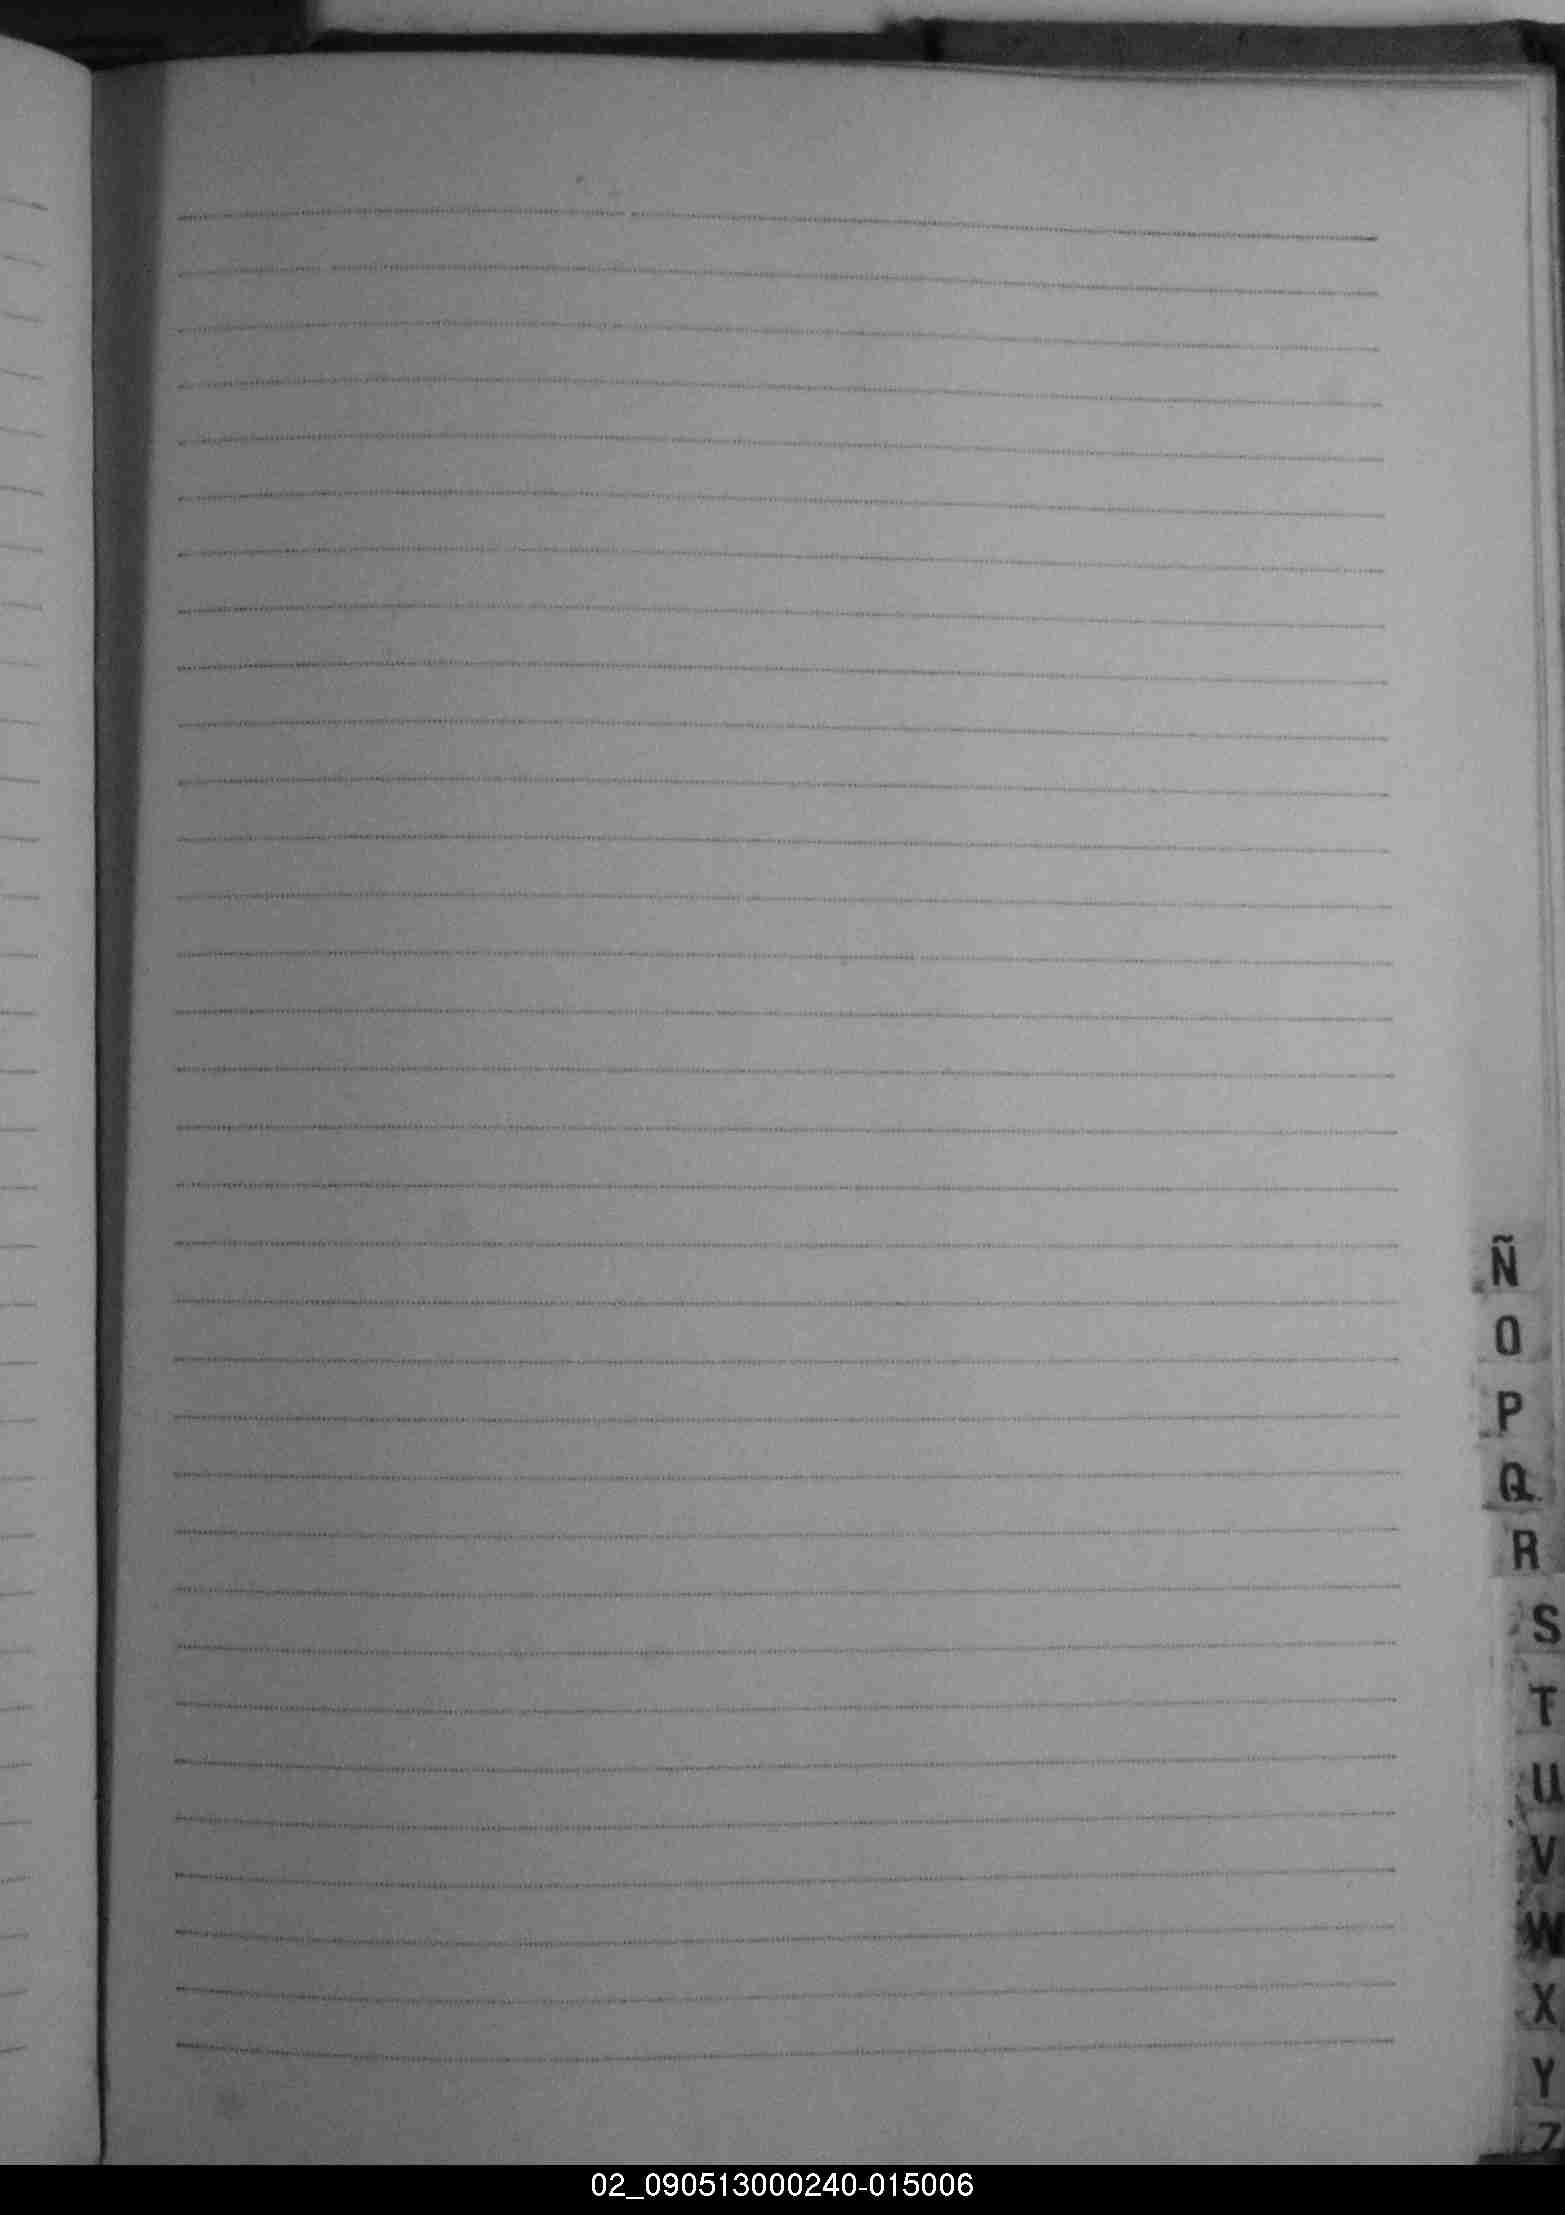 Ñ
O
P
Q
R
S
T
U
V
W
X
Y
Z
02_090513000240-015006